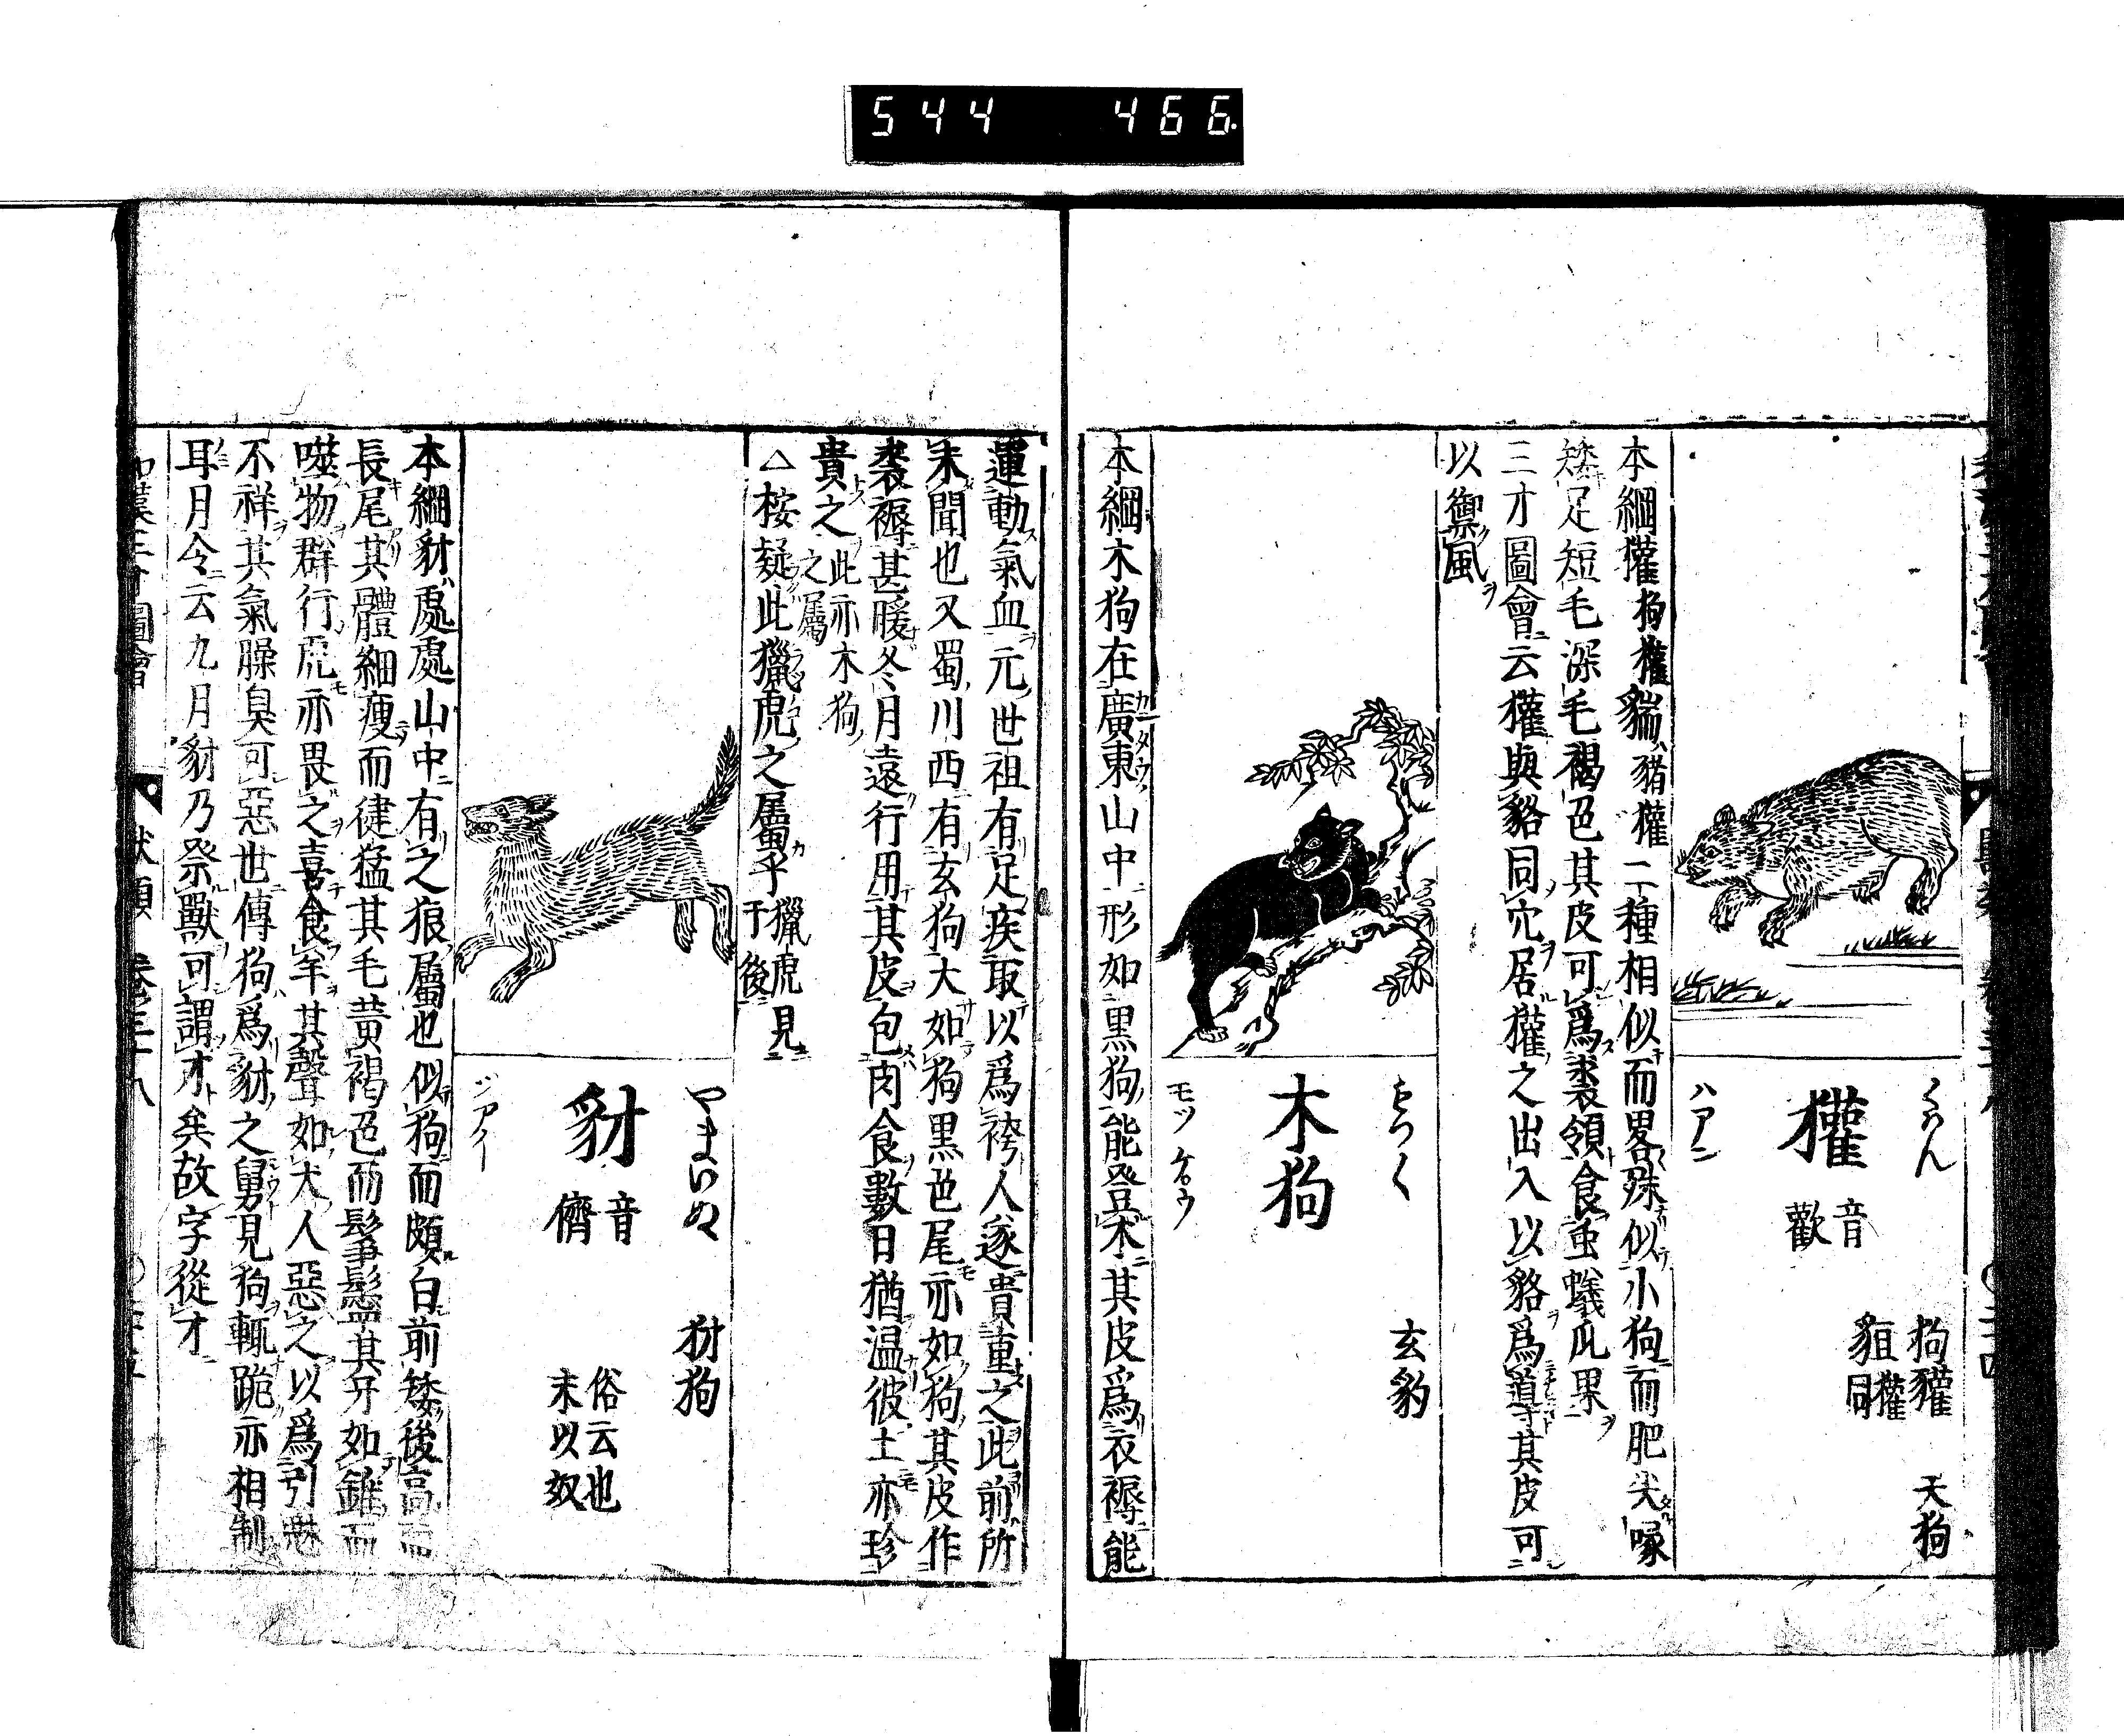 544 466
くわん
獾
音
歡
ハアン
狗貛
貆獾同
天狗
本綱獾狗獾貒猪獾二種相似而畧殊似小狗而肥尖喙
矮足短毛深毛褐色其皮可爲裘領食虫蟻瓜果
三才圖會云獾與貉同穴居獾之出入以貉爲導其皮可
以禦風
もつく
木狗
モツ ゲ゜ウ
玄豹
本綱木狗在廣東山中形如黒狗能登木其皮爲衣褥能
運動氣血元世祖有足疾取以爲袴人遂貴重之此前所
未聞也又蜀川西有玄狗大如狗黒色尾亦如狗其皮作
裘褥甚暖冬月遠行用其皮包肉食數日猶温彼土亦珍
貴之此亦木狗之屬
△桉疑此獵虎之屬乎獵虎見于後
やまいぬ
豺
音
儕
ジアイ
犲狗
俗云也
末以奴
本綱豺處處山中有之狼屬也似狗而頗白前矮後高而
長尾其體細瘦而健猛其毛黄褐色而鬇鬡其牙如錐而
噬物群行虎亦畏之喜食羊其聲如犬人惡之以爲引魅
不祥其氣臊臭可惡世傳狗爲豺之舅見狗輒跪亦相制
耳月令云九月豺乃祭獸可謂才矣故字從才
和漢三才圖會
獸類 卷三十八